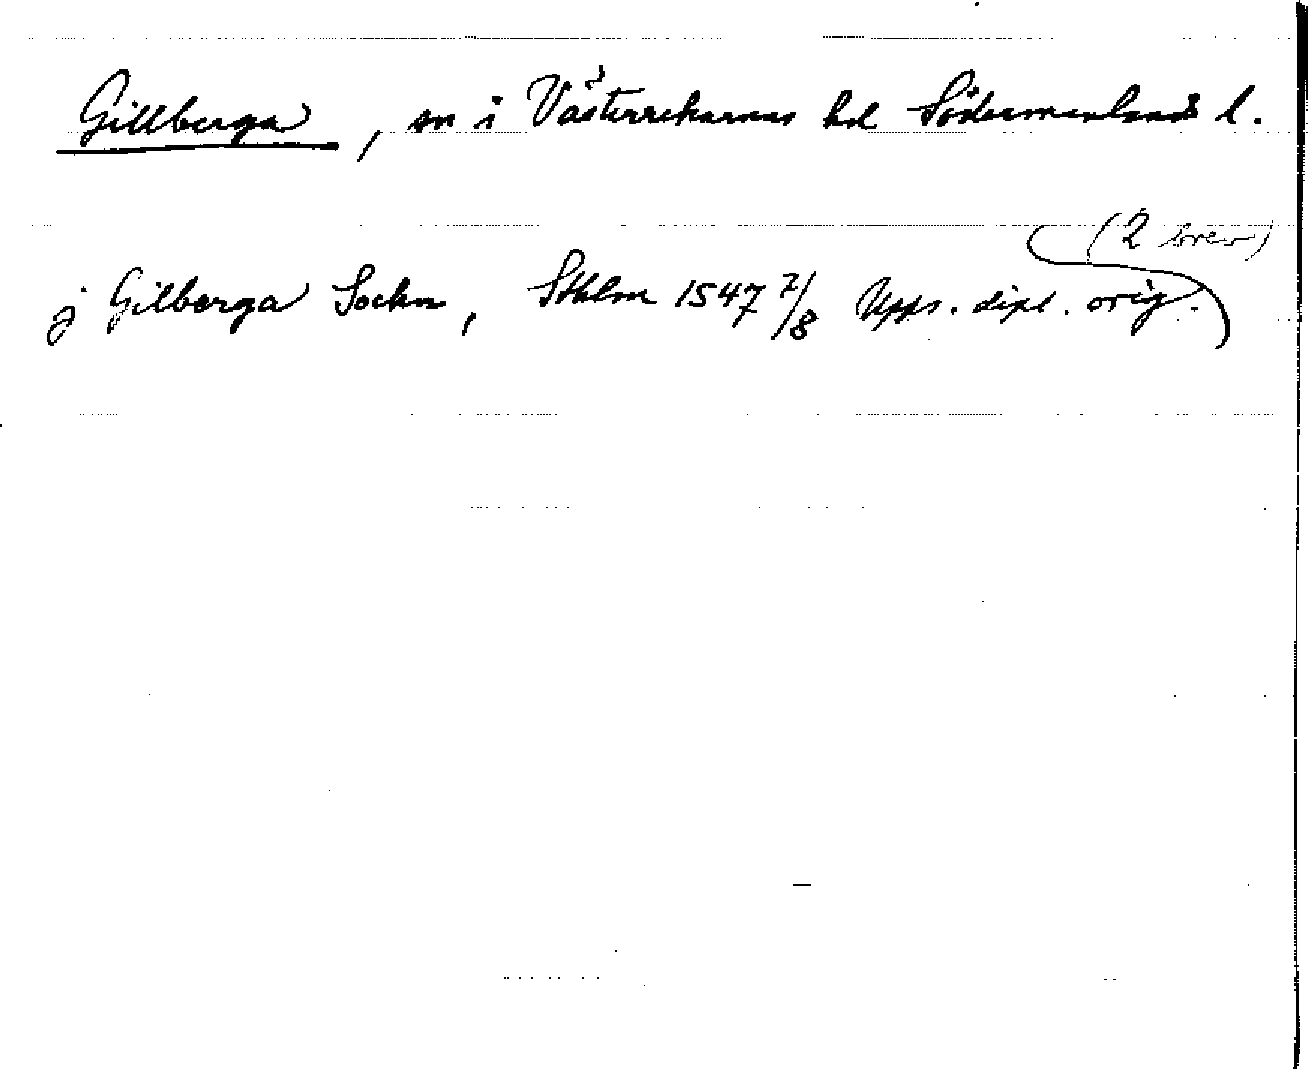 Gillberga, sn i Västerrekarnes hd Södermanlands l.
(2 brev)
j Gilberga Sochn, Sthlm 1547 7/8 Upps. dipl. orig.